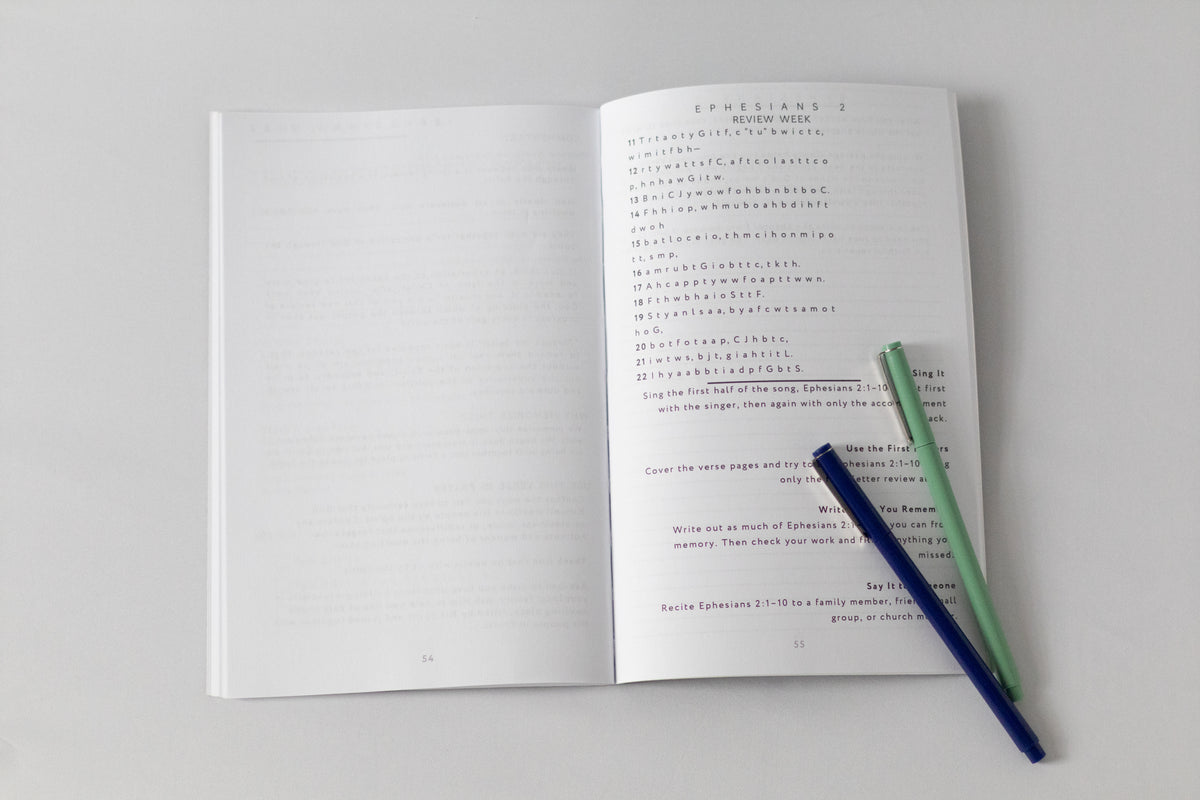 EPHESIANS 2
REVIEW WEEK
11 T r t a o t y G i t f, c "t u" b w i c t c,
w i m i t f b h—
12 r t y w a t t s f C, a f t c o l a s t t c o
p, h n h a w G i t w.
13 B n i C J y w o w f o h b b n b t b o C.
14 F h h i o p, w h m u b o a h b d i h f t
d w o h
15 b a t l o c e i o, t h m c i h o n m i p o
t t, s m p,
16 a m r u b t G i o b t t c, t k t h.
17 A h c a p p t y w w f o a p t t w w n.
18 F t h w b h a i o S t t F.
19 S t y a n l s a a, b y a f c w t s a m o t
h o G,
20 b o t f o t a a p, C J h b t c,
21 i w t w s, b j t, g i a h t i t L.
22 I h y a a b b t i a d p f G b t S.
Sing It
Sing the first half of the song, Ephesians 2:1–10 first
with the singer, then again with only the
Use the First
Cover the verse pages and try to Ephesians 2:1–10
only the letter review
You
Write out as much of Ephesians you can
memory. Then check your work and anything
missed.
Say It
Recite Ephesians 2:1–10 to a family member,
group, or church
54
55